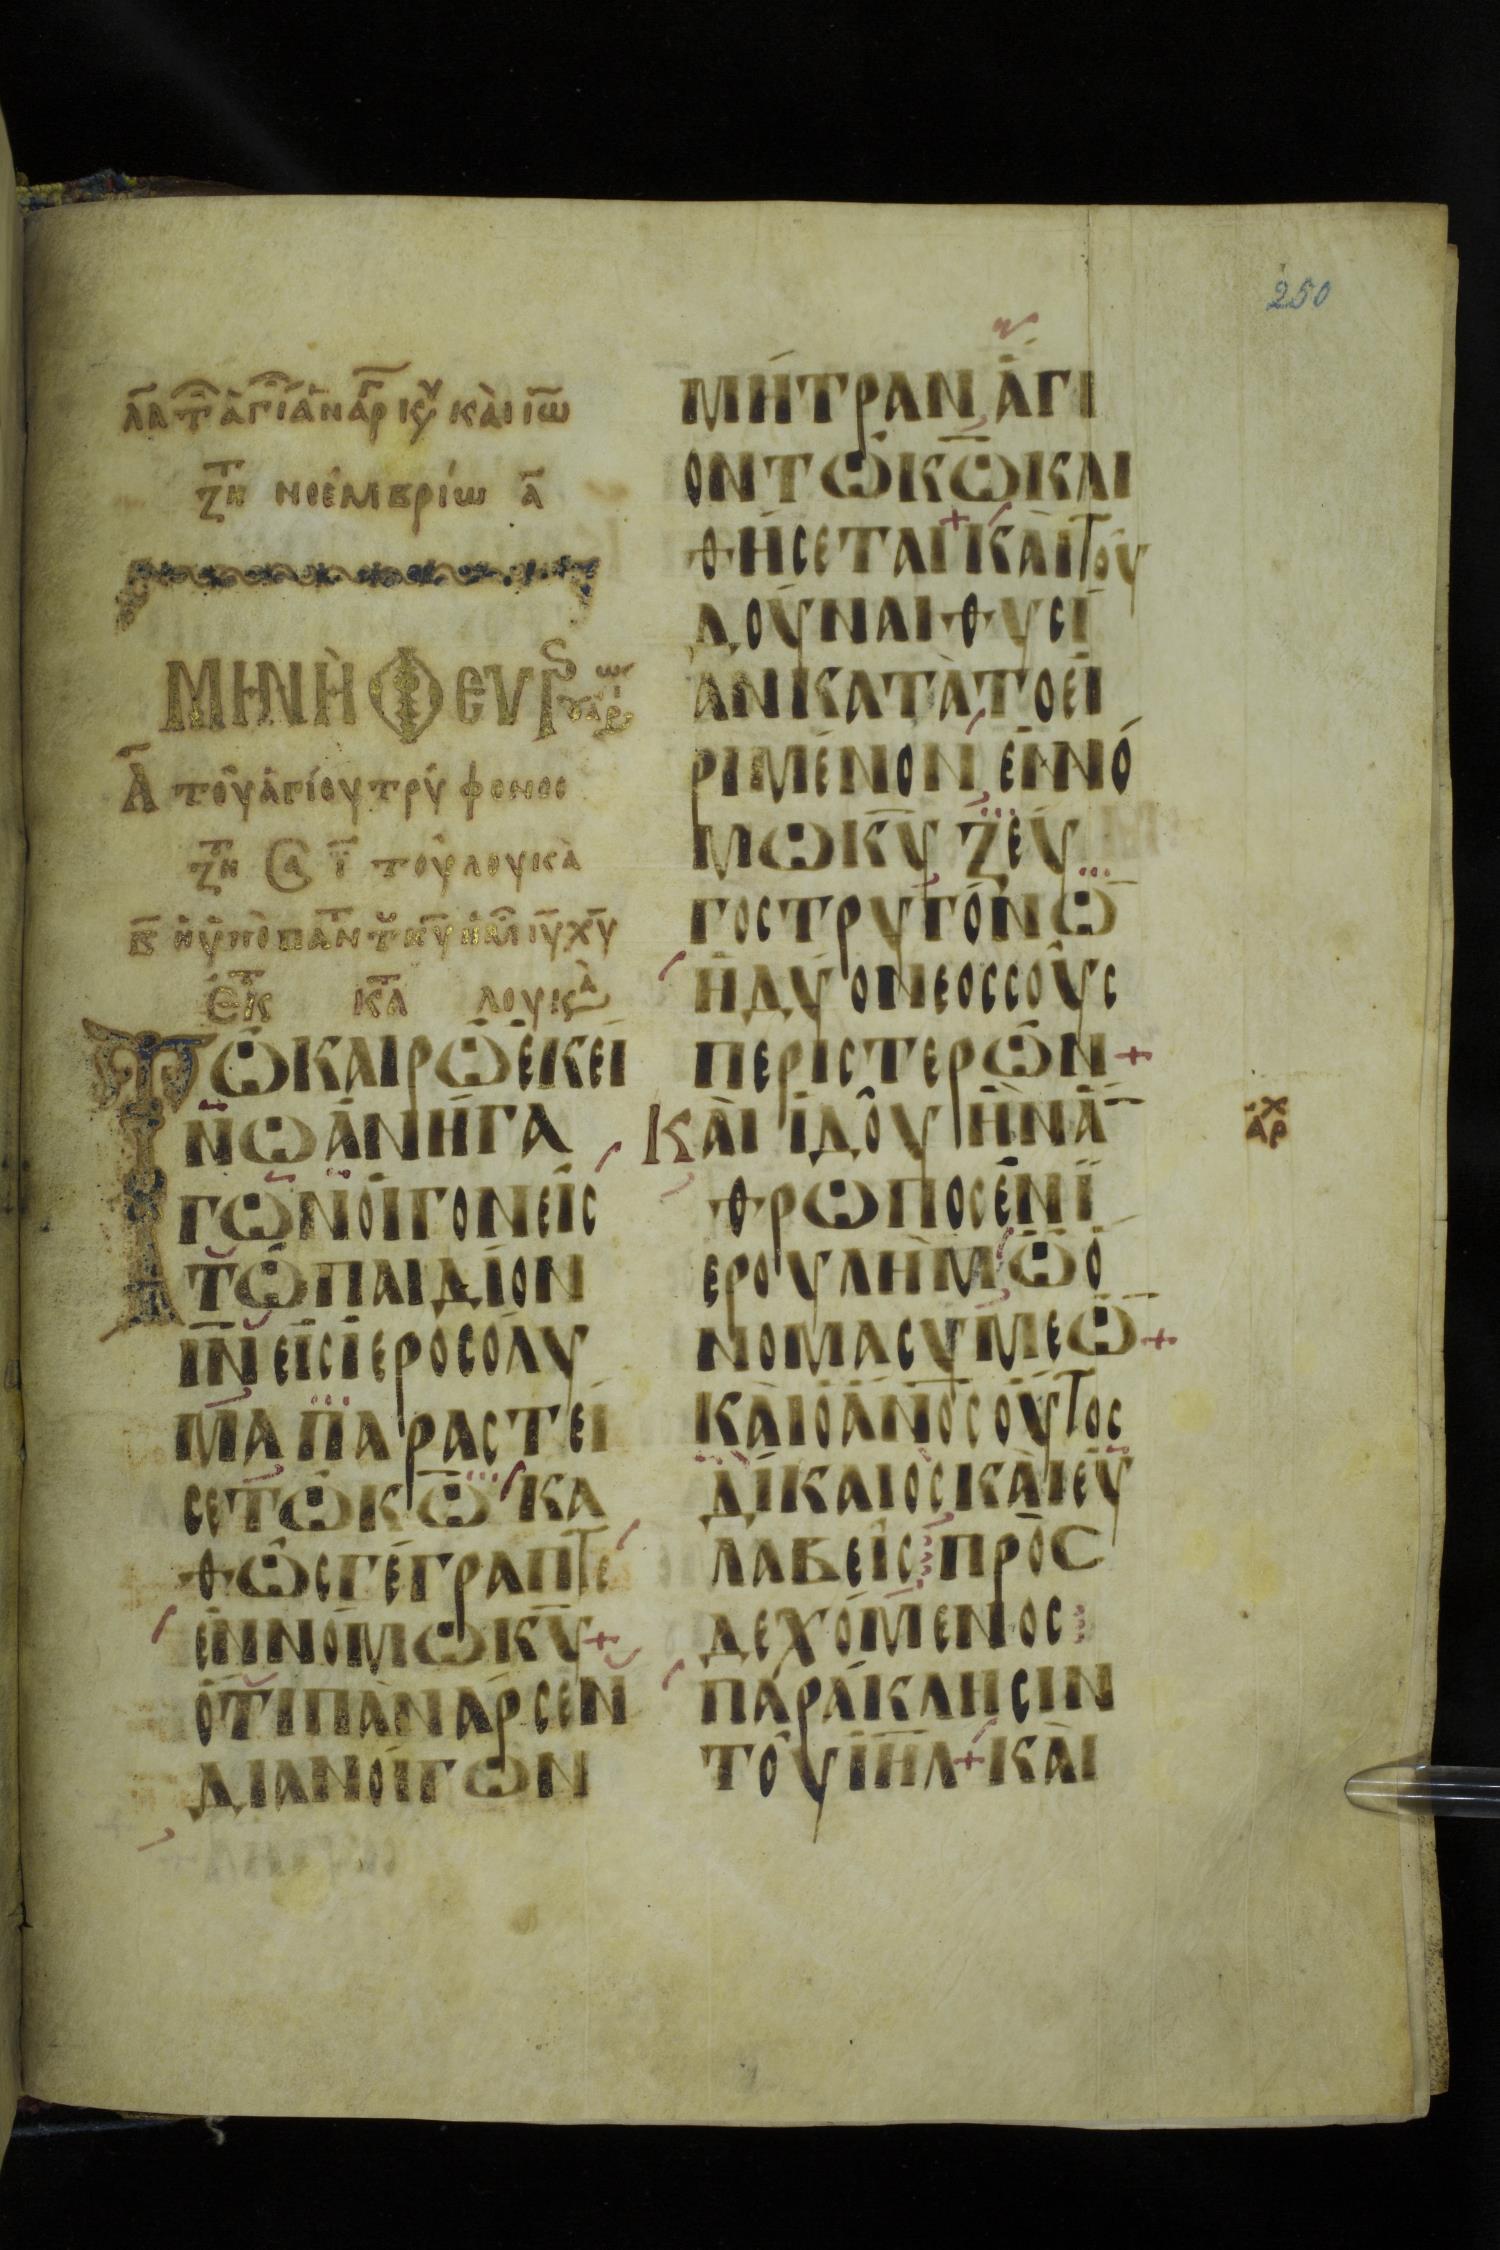 250
λα τ αγι αναρ κυ και ιω
ζη νοεμβριω α
ΜΗΝΗ ΦΕΥΡΟΥΑΡΙΩ
Α του αγιου τρυφονοσ
ζη Σα ι του λουκα
β η υποπαντ κυ ημ ιυ χυ
εκ κα λουκα
ΤΩ ΚΑΙΡΩ ΕΚΕΙ
ΝΩ ΑΝΗΓΑ
ΓΩΝ ΟΙ ΓΟΝΕΙΣ
ΤΩ ΠΑΙΔΙΟΝ
ΙΝ ΕΙΣ ΙΕΡΟΣΟΛΥ
ΜΑ ΠΑΡΑΣΤΕΙ
ΣΕ ΤΩ ΚΩ ΚΑ
ΘΩΣ ΓΕΓΡΑΠΤΕ
ΕΝ ΝΟΜΩ ΚΥ +
ΟΤΙ ΠΑΝ ΑΡΣΕΝ
ΔΙΑΝΟΙΓΩΝ
ΜΗΤΡΑΝ ΑΓΙ
ΟΝ ΤΩ ΚΩ ΚΛΙ
ΘΗΣΕΤΑΙ + ΚΑΙ ΤΟΥ
ΔΟΥΝΑΙ ΘΥΣΙ
ΑΝ ΚΑΤΑ ΤΟ ΕΙ
ΡΙΜΕΝΟΝ ΕΝ ΝΟ
ΜΩ ΚΥ ΖΕΥ
ΓΟΣ ΤΡΥΓΟΝΩ
Η ΔΥΟ ΝΕΟΣΣΟΥΣ
ΠΕΡΙΣΤΕΡΩΝ +
ΚΑΙ ΙΔΟΥ ΗΝ Α
ΘΡΩΠΟΣ ΕΝ Ι
ΕΡΟΥΛΗΜ Ω Ο
ΝΟΜΑ ΣΥΜΕΩ +
ΚΑΙ Ο ΑΝΟΣ ΟΥΤΟΣ
ΔΙΚΑΙΟΣ ΚΑΙ ΕΥ
ΛΑΒΕΙΣ ΠΡΟΣ
ΔΕΧΟΜΕΝΟΣ
ΠΑΡΑΚΛΗΣΙΝ
ΤΟΥ ΙΗΛ + ΚΑΙ
αρχ